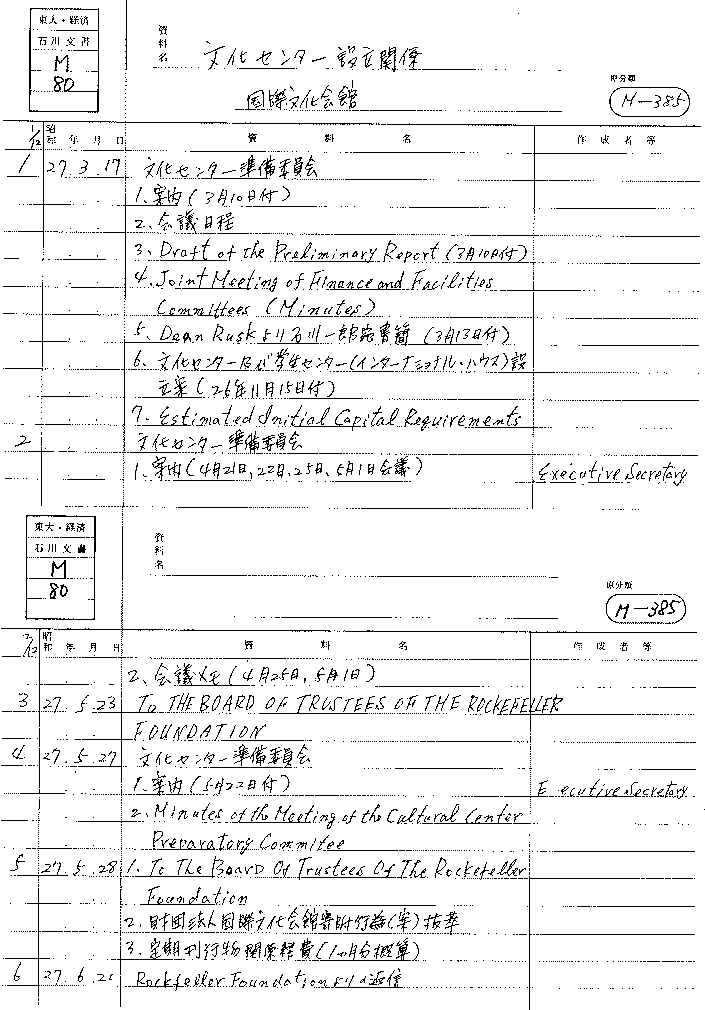 東大・経済
石川文書
M
80
資料名
文化センター設立関係
国際文化会館
原分類
M-385
1/12 昭和 年 月 日 資料名 作成者等
1 27.3.17 文化センター準備委員会
1.案内(3月10日付)
2.会議日程
3.Draft of the Preliminary Report (3月10日付)
4.Joint Meeting of Finance and Facilities
Committees (Minutes)
5.Dean Ruskより石川一郎宛書簡 (3月13日付)
6.文化センター及び学生センター(インターナショナル・ハウス)設
立案(26年11月15日付)
7.Estimated Initial Capital Requirements
2 文化センター準備委員会
1.案内(4月21日,22日,25日,5月1日会議) Executive Secretary
東大・経済
石川文書
M
80
資料名
原分類
M-385
2/12 昭和 年 月 日 資料名 作成者等
2.会議メモ(4月25日,5月1日)
3 27.5.23 To THE BOARD OF TRUSTEES OF THE ROCKEFELLER
FOUNDATION
4 27.5.27 文化センター準備委員会
1.案内(5月22日付) E ecutive Secretary
2.Minutes of the Meeting of the Cultural Center
Preparatory Commitee
5 27.5.28 1.To The Board Of Trustees Of The Rockefeller
Foundation
2.財団法人国際文化会館寄附行為(案)抜萃
3.定期刊行物関係経費(1ヶ月分概算)
6 27.6. Rockfeller Foundationよりの返信